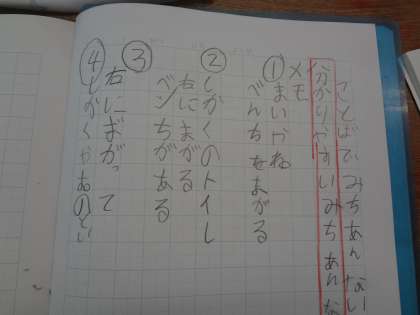 ことばでみちあんない
分かりやすいみちあんな
メモ
①まいやね
べんちをまがる
②しかくのトイレ
右にまがる
ベンチがある
③
右にぎがって
④しかくやあのとい